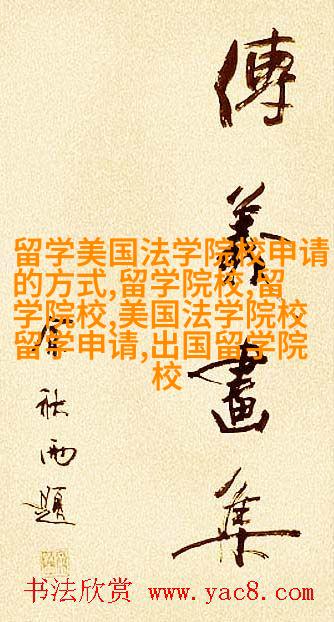 畫集
秋雨題
留学美国法学院校申请
的方式,留学院校,留
学院校,美国法学院校
留学申请,出国留学院
校
书法欣赏 www.yac8.com